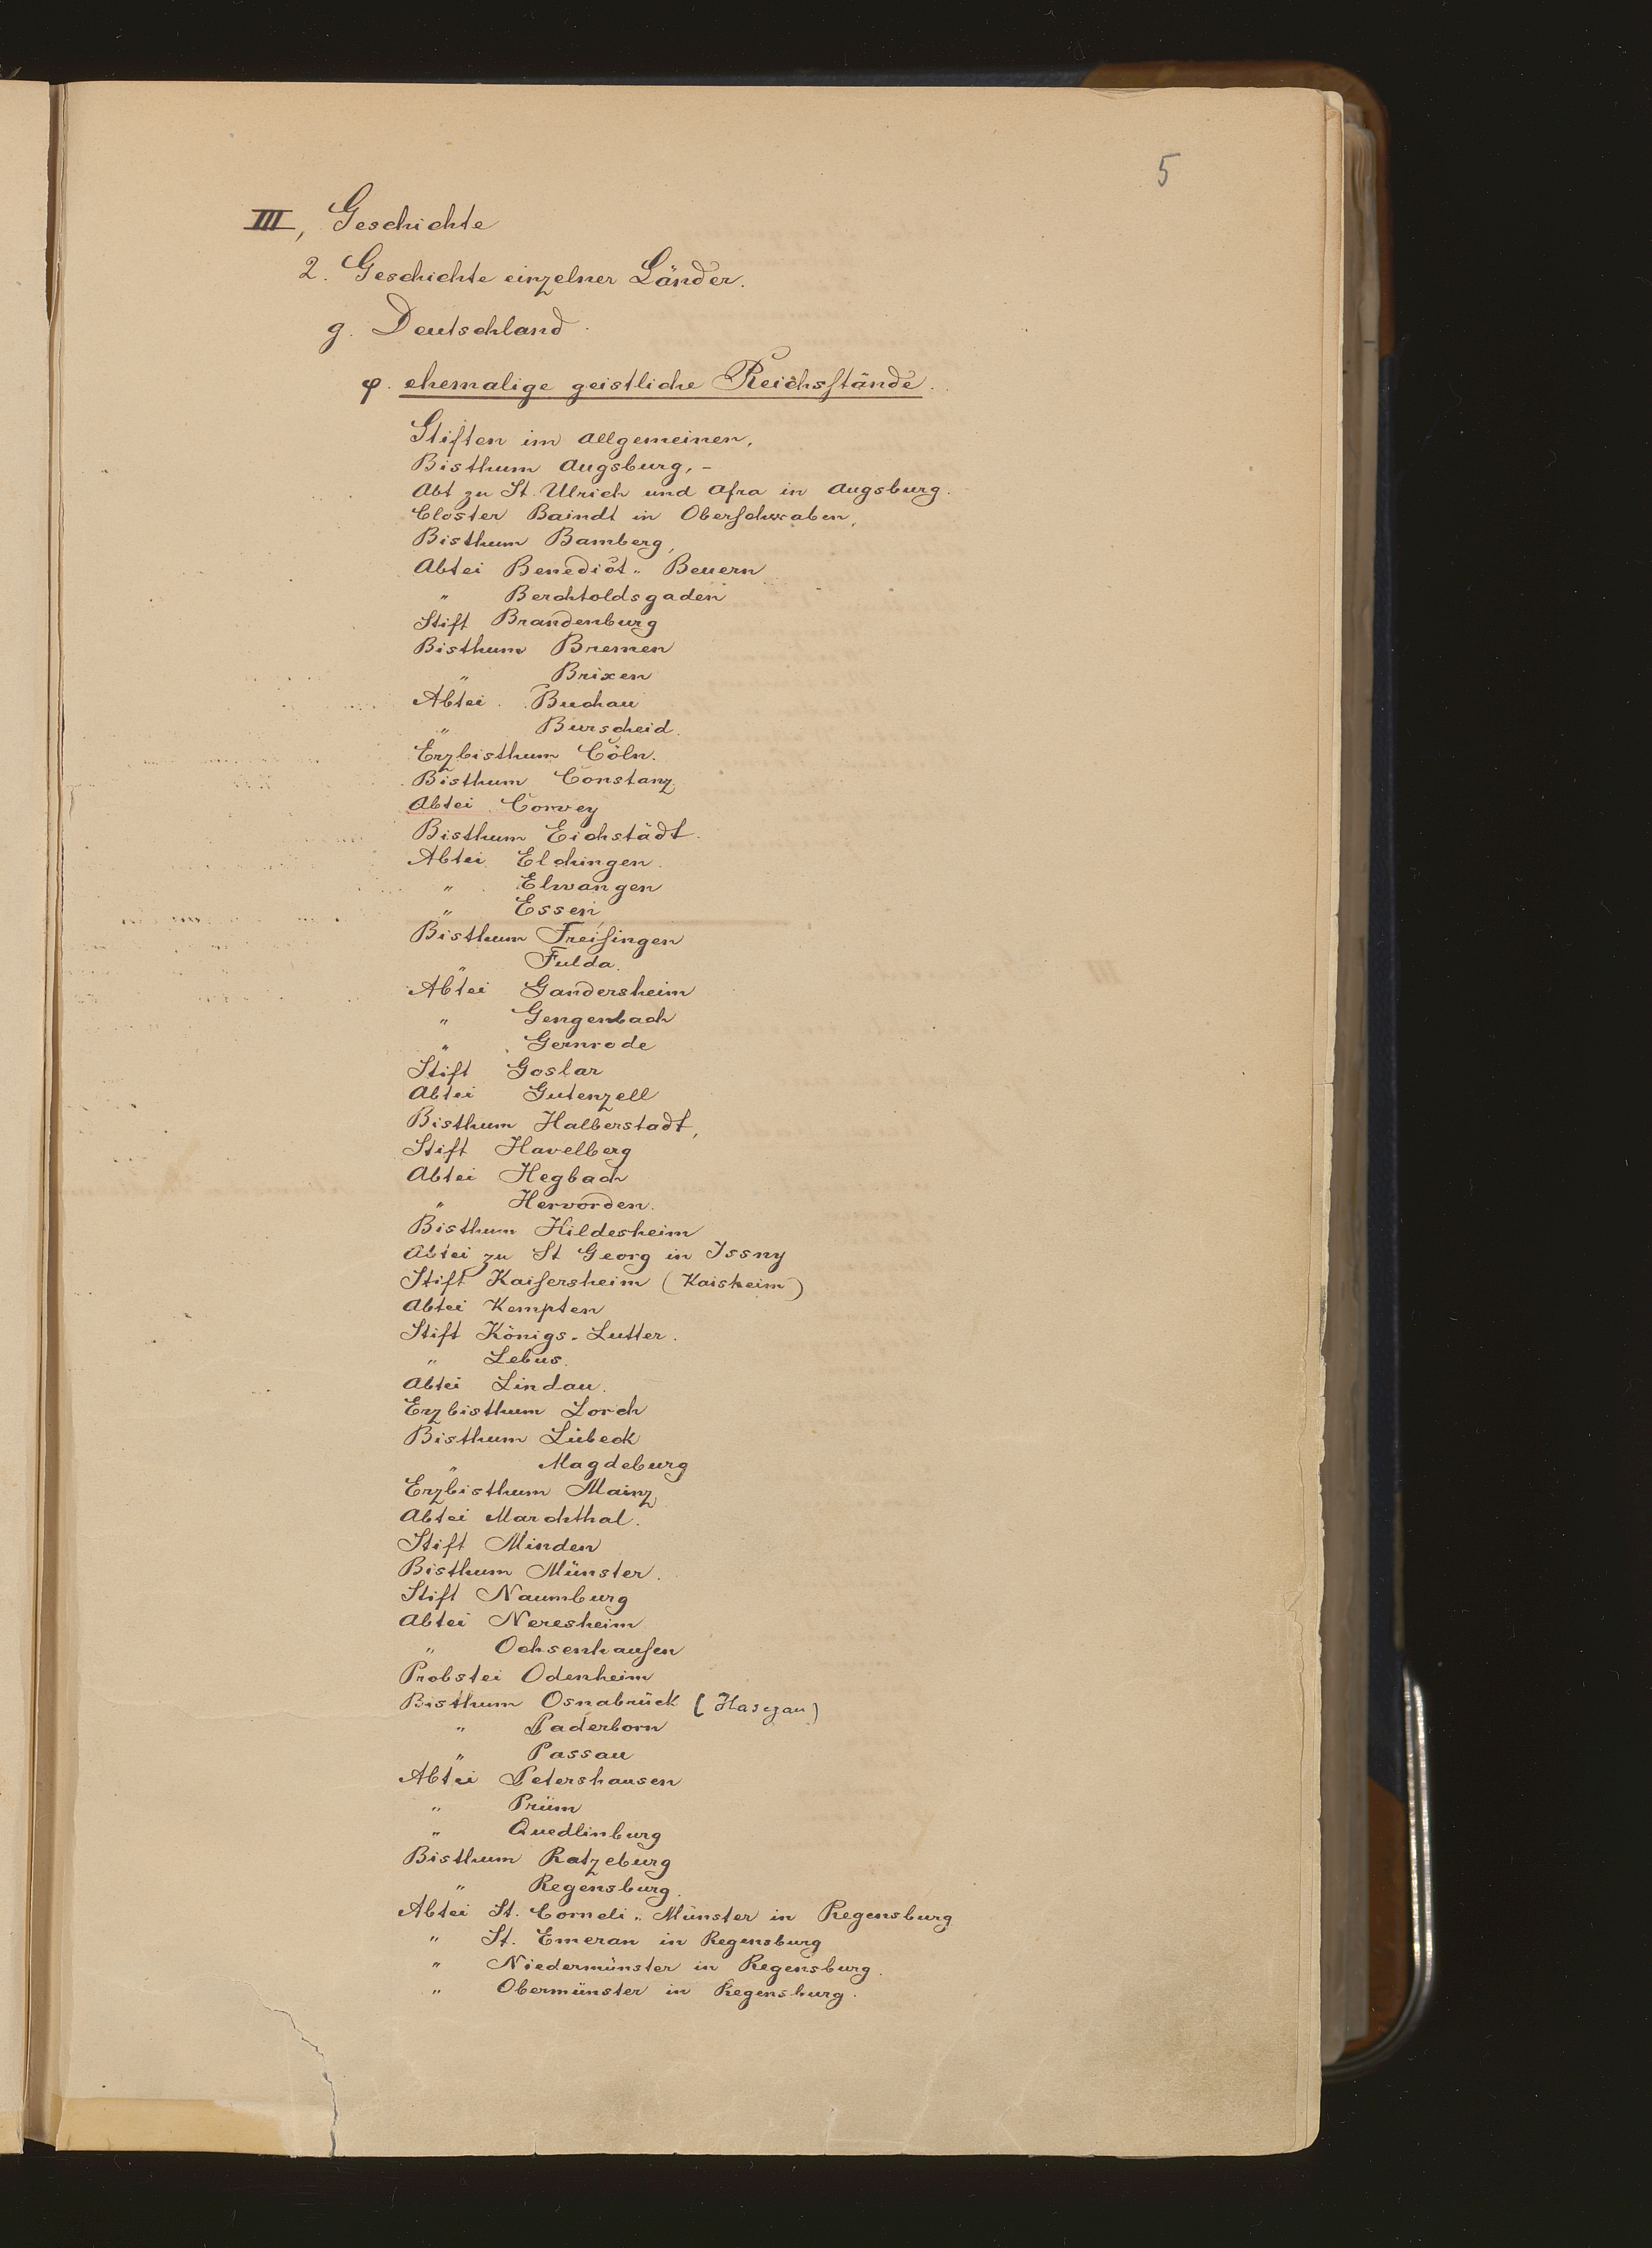 5
III, Geschichte
2. Geschichte einzelner Länder.
g. Deutschland.
φ. ehemalige geistliche Reichsstände.
Stiften im allgemeinen,
Bisthum Augsburg, -
Abt zu St. Ulrich und Afra in Augsburg.
Closter Baindt in Oberschwaben,
Bisthum Bamberg,
Abtei Benedict-Beuern
" Berchtoldsgaden
Stift Brandenburg
Bisthum Bremen
" Brixen
Abtei Buchau
" Burscheid.
Erzbisthum Cöln.
Bisthum Constanz
Abtei Corvey
Bisthum Eichstädt.
Abtei Elchingen.
" Elwangen
" Essen
Bisthum Freisingen
" Fulda.
Abtei Gandersheim
" Gengenbach
" Gernrode
Stift Goslar
Abtei Gutenzell
Bisthum Halberstadt,
Stift Havelberg
Abtei Hegbach
" Hervorden.
Bisthum Hildesheim
Abtei zu St Georg in Issny
Stift Kaisersheim (Kaisheim)
Abtei Kempten
Stift Königs-Lutter.
" Lebus.
Abtei Lindau.
Erzbisthum Lorch
Bisthum Lübeck
" Magdeburg
Erzbisthum Mainz
Abtei Marchthal.
Stift Minden
Bisthum Münster.
Stift Naumburg
Abtei Neresheim
" Ochsenhausen
Probstei Odenheim
Bisthum Osnabrück (Hasgau)
" Paderborn
" Passau
Abtei Petershausen
" Prüm
" Quedlinburg
Bisthum Ratzeburg
" Regensburg.
Abtei St. Corneli-Münster in Regensburg
" St. Emeran in Regensburg
" Niedermünster in Regensburg.
" Obermünster in Regensburg.